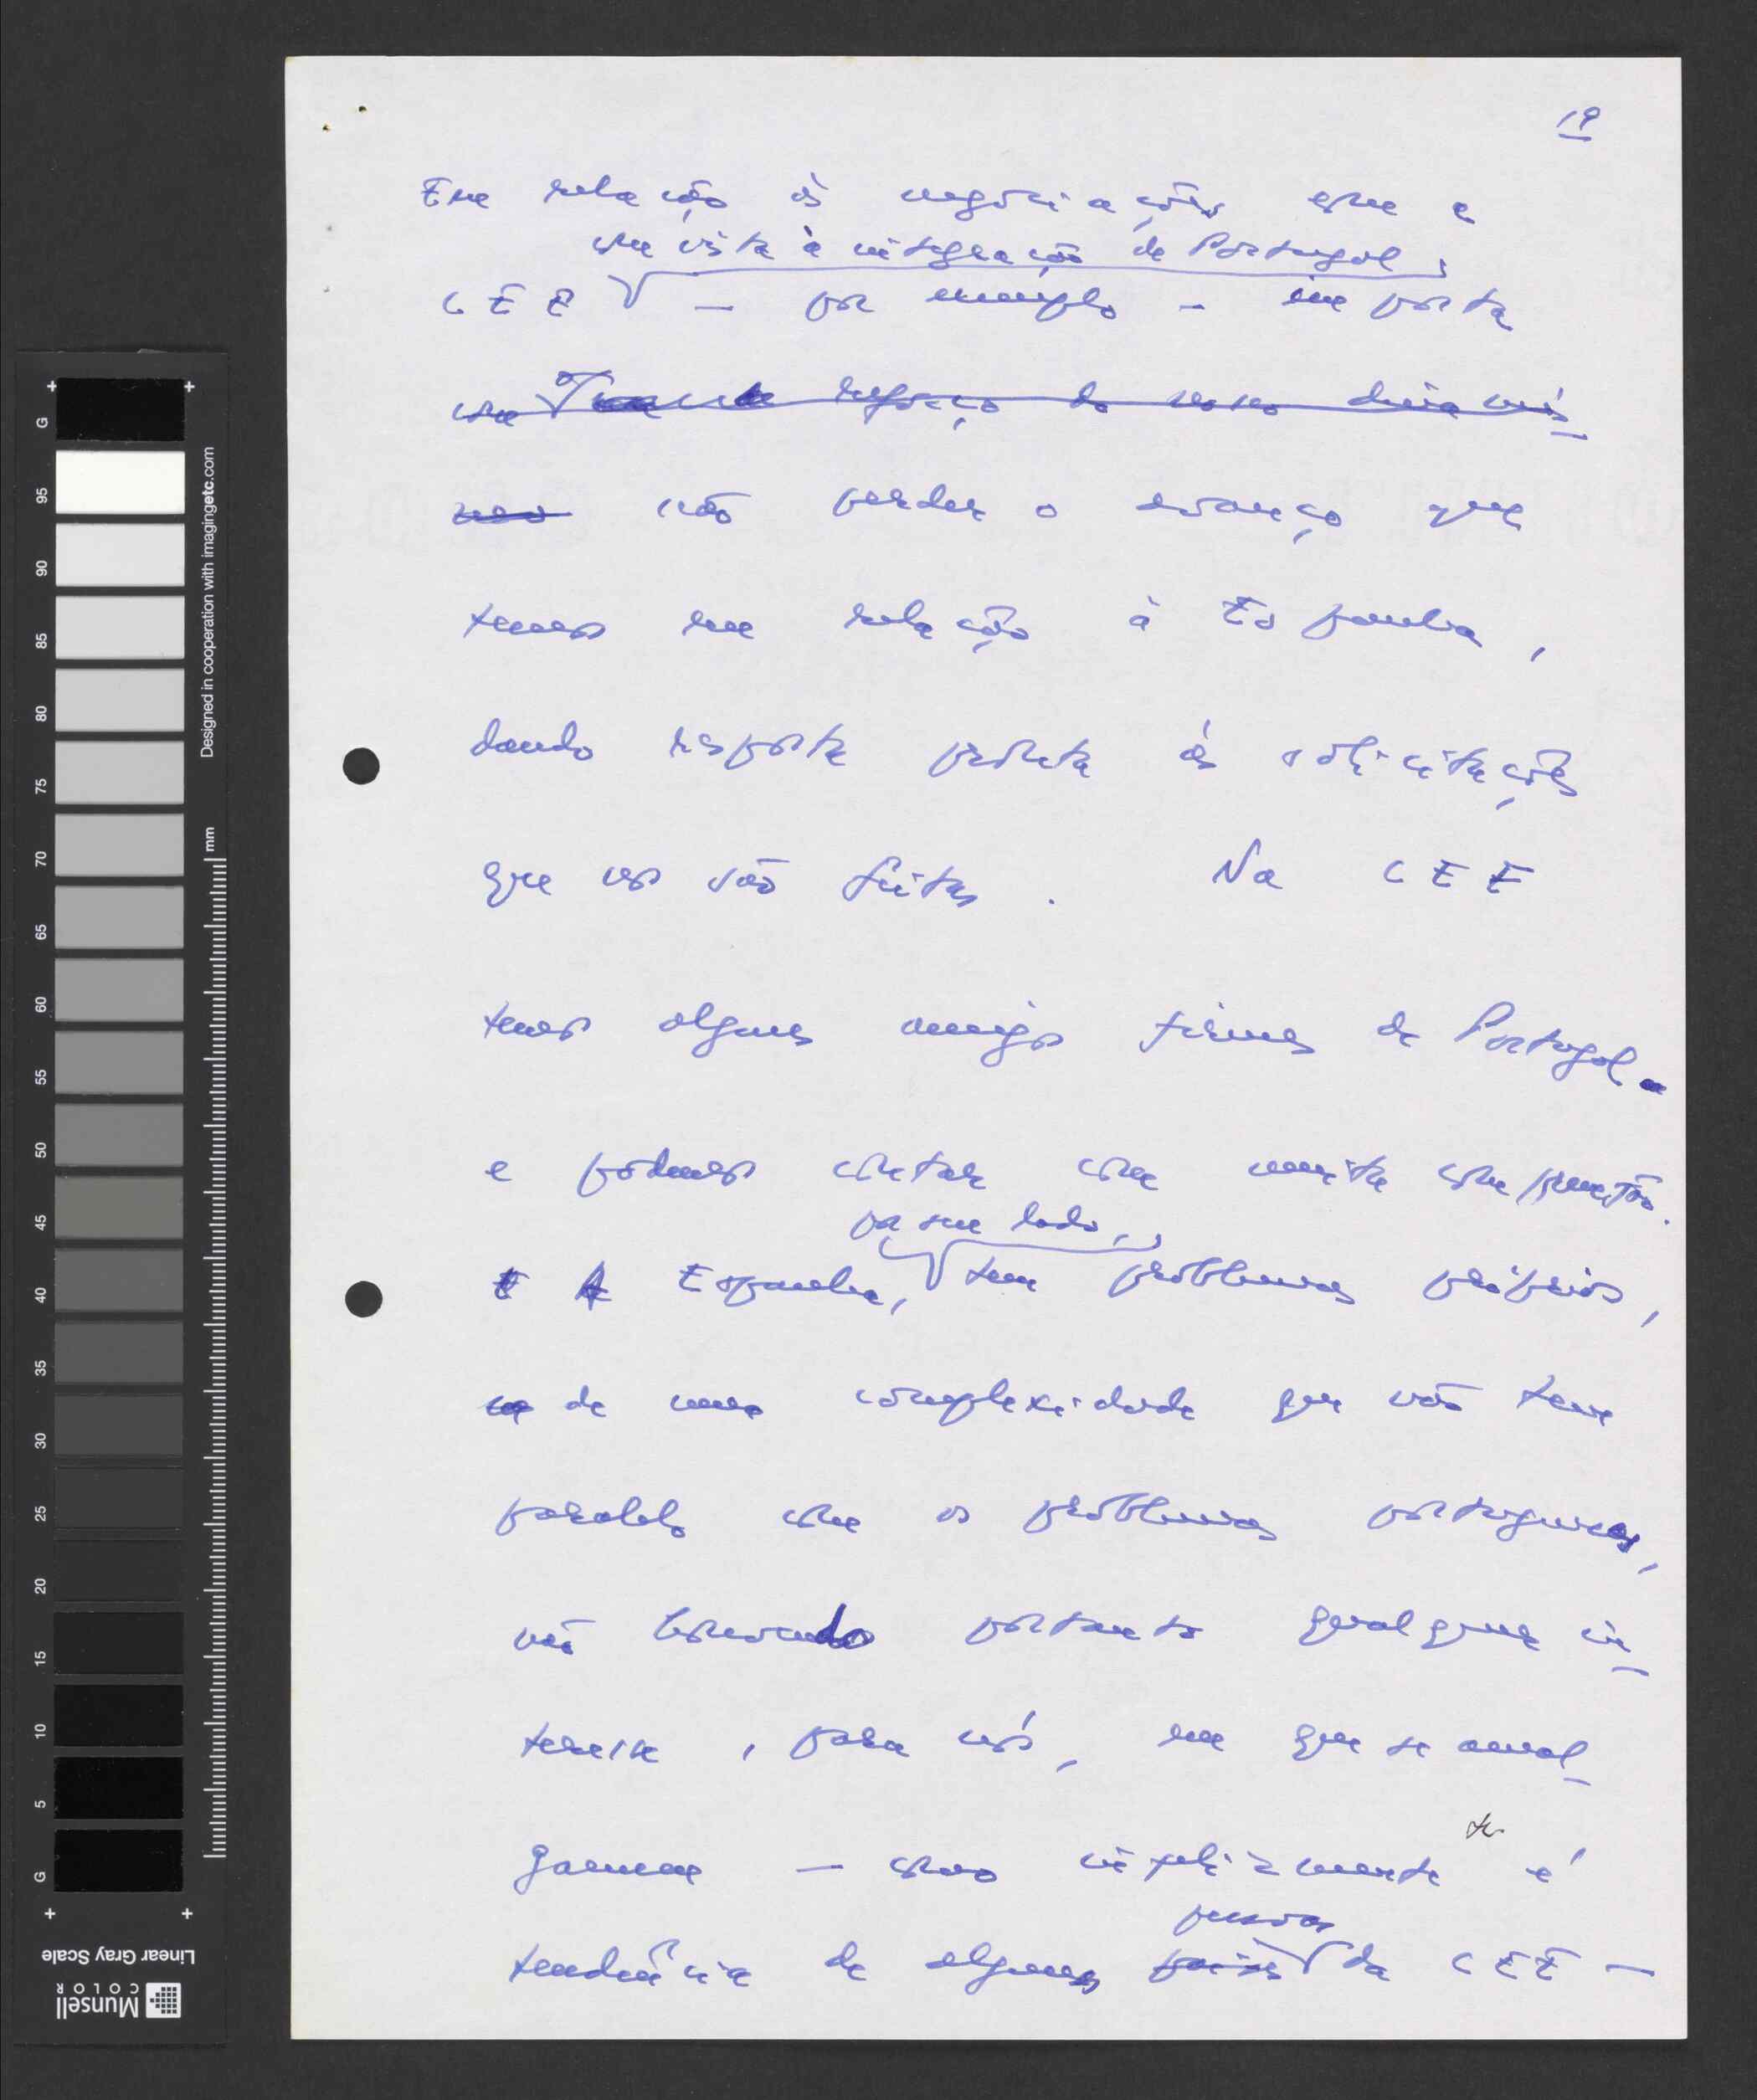 19
Em relação às negociações com a
com vista à integração de Portugal,
CEE — por exemplo - importa
reforço do nosso dinamis_
mo não perder o avanço que
temos em relação à Espanha,
dando resposta pronta às solicitações
que nos são feitas. Na CEE
temos alguns amigos firmes de Portugal.
e podemos contar com muita compreensão.
por seu lado,
E A Espanha, tem problemas próprios,
de uma complexidade que não tem
paralelo com os problemas portugueses,
não havendo portanto qualquer in_
teresse, para nós, em que se amal_
gamem — como infelizmente é
pessoas
tendência de algumas países da CEE —
G
95
90
85
80
75
70
65
60
55
50
45
40
35
30
25
20
15
10
5
G
Designed in cooperation with imagingetc.com
mm
Linear Gray Scale
Munsell
COLOR